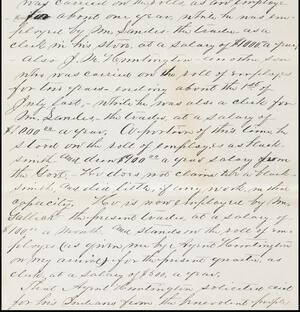 was carried on the rolls as an employe
for about one year, while he was em-
ployed by Mr Sanders the trader as a
clerk in his store, at a salary of $1000 a year,
- also J. M. Huntington - another son
who was carried on the roll of employes
for two years - ending about the 1st of
July last, - while he was also a clerk for
Mr. Sanders, the trader, at a salary of
$1000 00 a year. A portion of this time he
stood on the roll of employes as black-
smith and drew $900 00 a year salary from
the Govt. - He does not claim to be a black-
smith and did little, if any work in that
capacity. He is now employed by Mr
the present trader at a salary of
$100 00 a month and stands on the roll of em-
ployes (as given me by Agent Huntington
on my arrival) for the present quarter as
clerk, at a salary of $300. a year.
That Agent Huntington solicited aid
for his Indians from the benevolent people